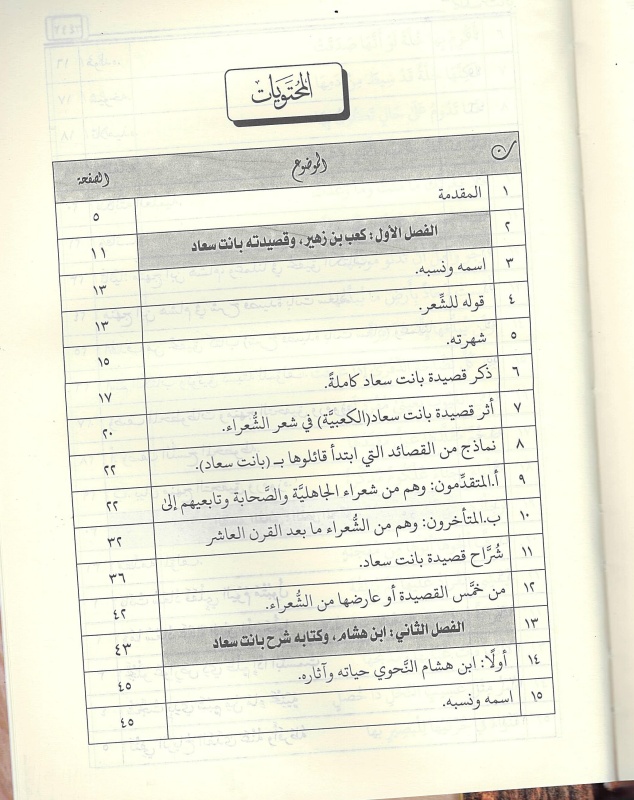 المحتويات
ت الموضوع الصفحة
١ المقدمة ٥
٢ الفصل الأول: كعب بن زهير، وقصيدته بانت سعاد ١١
٣ اسمه ونسبه. ١٣
٤ قوله للشِّعر. ١٣
٥ شهرته. ١٥
٦ ذكر قصيدة بانت سعاد كاملةً. ١٧
٧ أثر قصيدة بانت سعاد(الكعبيَّة) في شعر الشُّعراء. ٢٠
٨ نماذج من القصائد التي ابتدأ قائلوها بـ (بانت سعاد). ٢٢
٩ أ.المتقدِّمون: وهم من شعراء الجاهليَّة والصَّحابة وتابعيهم إلى ٢٢
١٠ ب.المتأخرون: وهم من الشُّعراء ما بعد القرن العاشر ٣٢
١١ شُرَّاح قصيدة بانت سعاد. ٣٦
١٢ من خمَّس القصيدة أو عارضها من الشُّعراء. ٤٢
١٣ الفصل الثاني: ابن هشام، وكتابه شرح بانت سعاد ٤٣
١٤ أولًا: ابن هشام النَّحوي حياته وآثاره. ٤٥
١٥ اسمه ونسبه. ٤٥